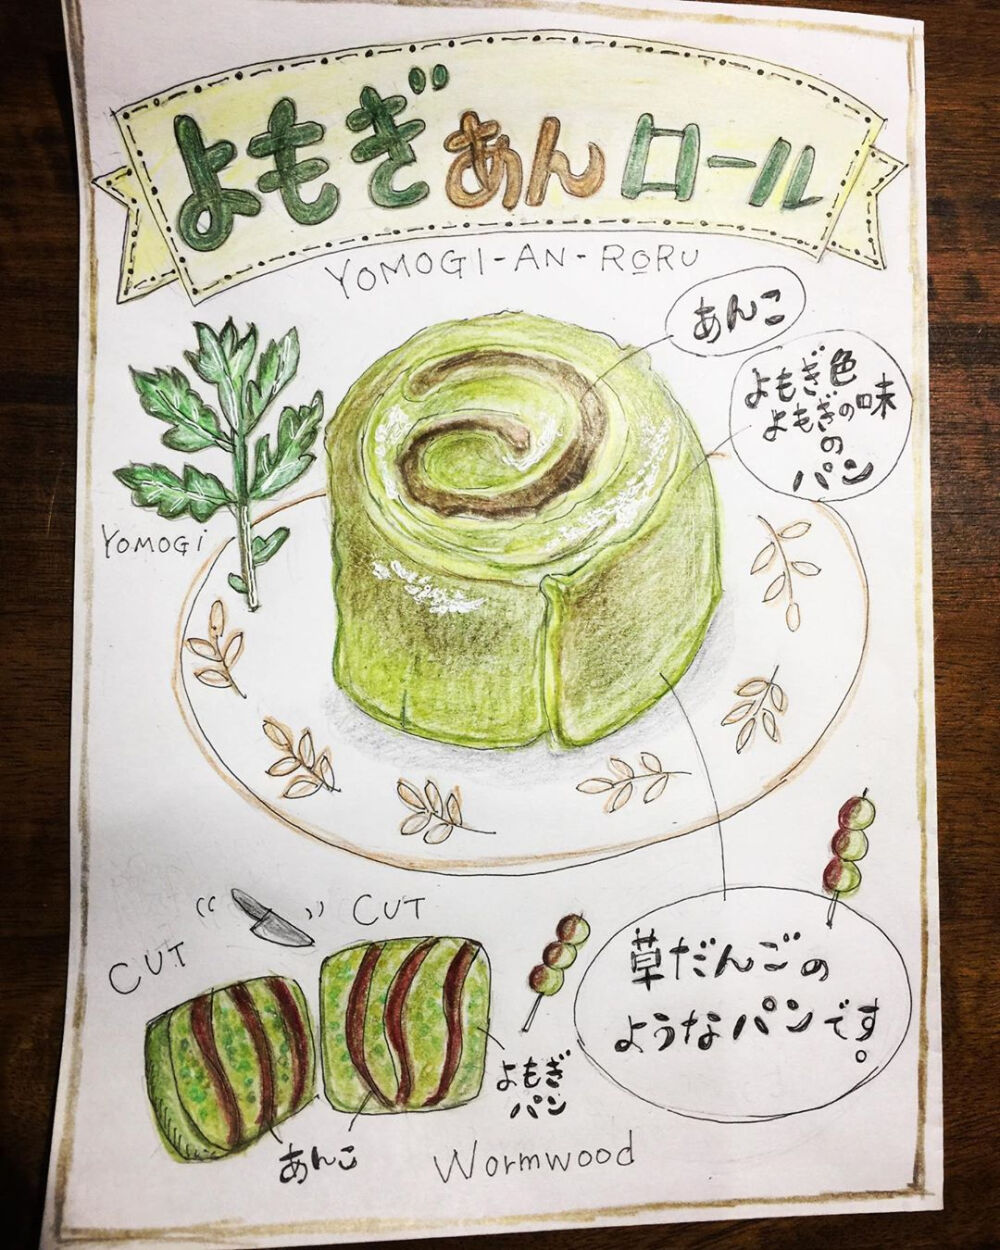 よもぎあんロール
YOMOGI-AN-RORU
あんこ
よもぎ色
よもぎの味
の
パン
YOMOGI
CUT
CUT
草だんごの
ようなパンです。
よもぎ
パン
あんこ
Wormwood